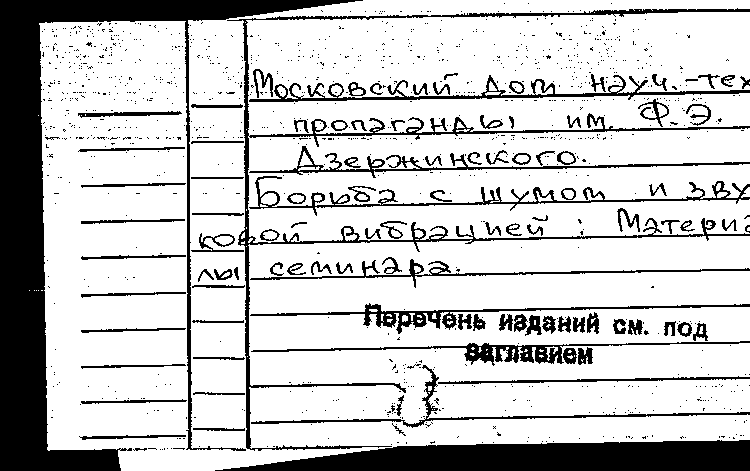 Московский дом науч.-тех
пропаганды им. Ф.Э.
Дзержинского.
Борьба с шумом и зву
ковой вибрацией : Материа
лы семинара.
Перечень изданий см. под
заглавием